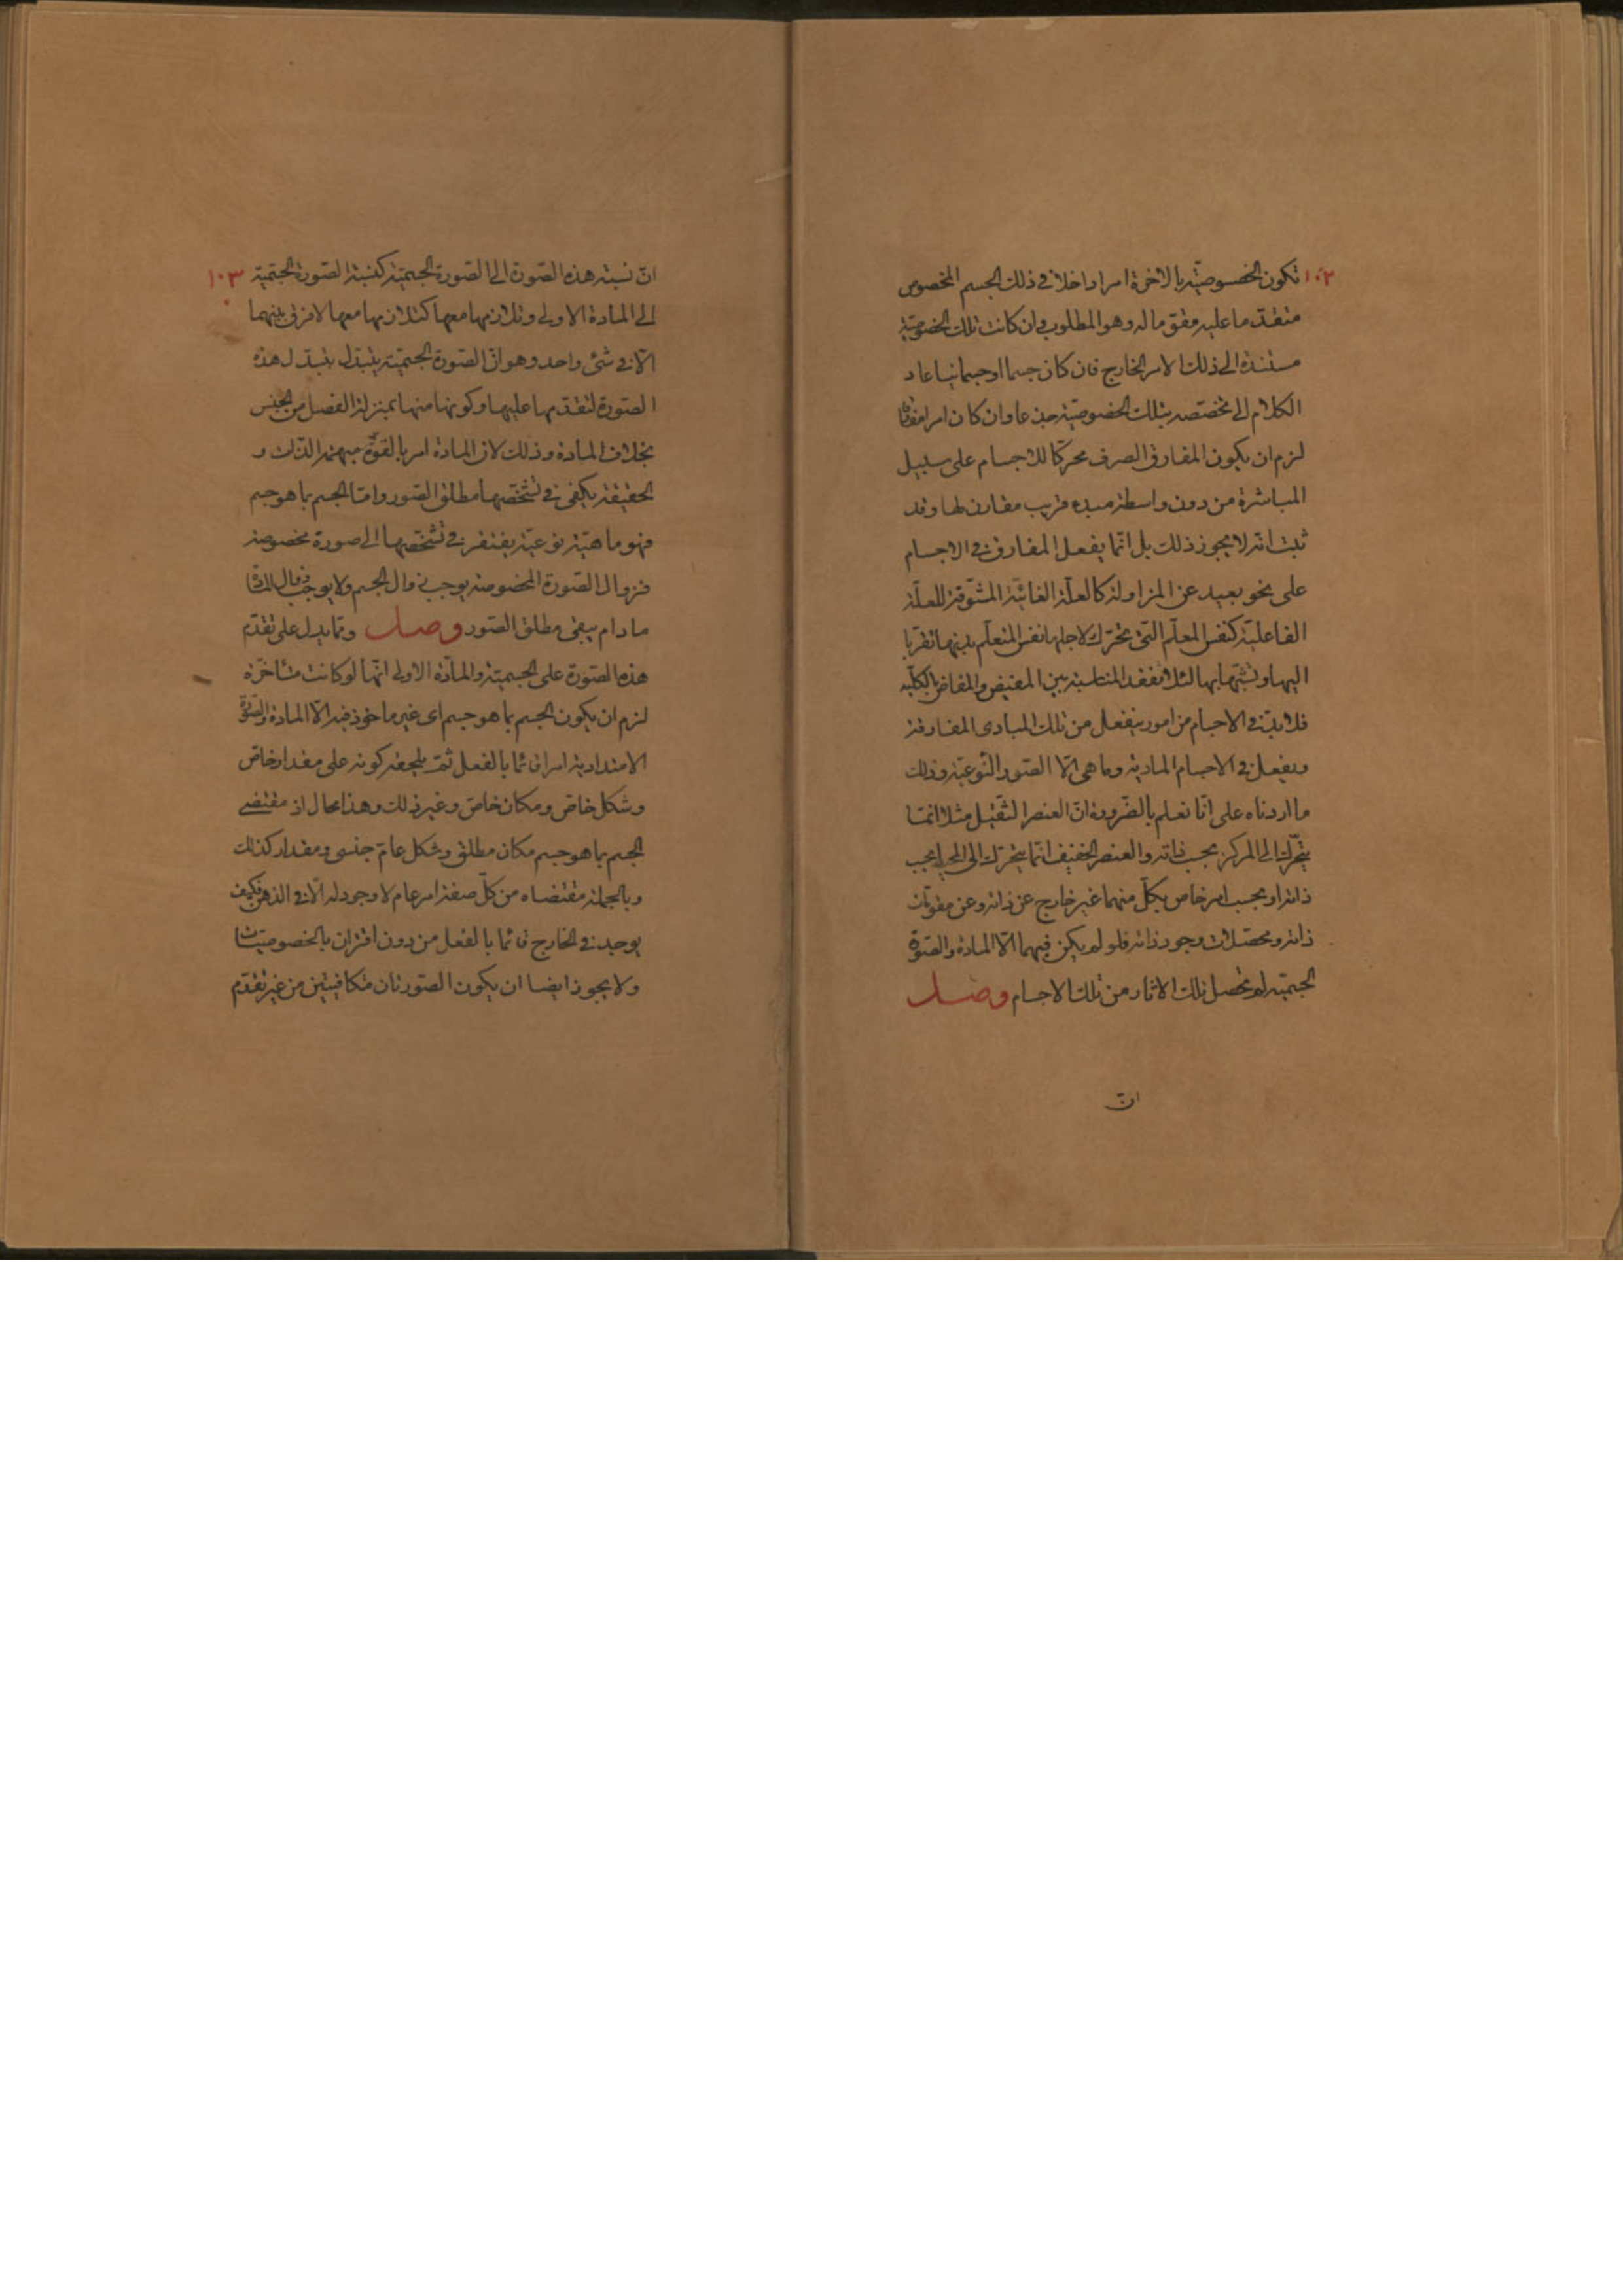 ١٠٢
تكون الخصوصيّة بالاخرة امرا داخلا فى ذلك الجسم المخصوص
متقدّما عليه مقوّما له وهو المطلوب وان كانت تلك الخصوصيّة
مستندة الى ذلك الامر الخارج فان كان جسما او جسمانيا عاد
الكلام الى تخصّصه بتلك الخصوصيّة جذعا وان كان امرا مفارقا
لزم ان يكون المفارق الصرف محرّكا للاجسام على سبيل
المباشرة من دون واسطة مبدء قريب مقارن لها وقد
ثبت انه لا يجوز ذلك بل انّما يفعل المفارق فى الاجسام
على نحو بعيد عن المزاولة كالعلّة الغائيّة المشوّقة للعلّة
الفاعليّة كنفس المعلّم التى تتحرّك لاجلها نفس المتعلّم بدنها تقرّبا
اليها وتشبّها بها لئلا تفقد المناسبة بين المفيض والمفاض بالكليّه
فلابدّ فى الاجسام من امور ينفعل من تلك المبادى المفارقة
ويفعل فى الاجسام المادية وما هى الّا الصور النّوعيّة وذلك
ما اردناه على انّا نعلم بالضّرورة انّ العنصر الثّقيل مثلا انّما
يتحرّك الى المركز بحسب ذاته والعنصر الخفيف انّما يتحرّك الى المحيط بحسب
ذاته او بحسب امر خاص بكلّ منهما غير خارج عن ذاته وعن مقوّمات
ذاته ومحصّلات وجود ذاته فلو لم يكن فيهما الّا المادة والصّورة
الجسميّة لم تحصل تلك الاثار من تلك الاجسام وصل
انّ
١٠٣
انّ نسبة هذه الصّورة الى الصّورة الجسميّة كنسبة الصّورة الجسميّة
الى المادة الاولى وتلازمها معها كتلازمها معها لا فرق بينهما
الّا فى شئ واحد وهو انّ الصّورة الجسميّة يتبدّل بتبدّل هذه
الصّورة لتقدّمها عليها وكونها منها بمنزلة الفصل من الجنس
بخلاف المادة وذلك لان المادة امر بالقوّة مبهمة الذّات و
الحقيقة يكفى فى تشخّصها مطلق الصّور وامّا الجسم بما هو جسم
فهو ماهيّة نوعيّة يفتقر فى تشخّصها الى صورة مخصوصة
فزوال الصّورة المخصوصة يوجب زوال الجسم ولا يوجب زوال المادّة
ما دام يبقى مطلق الصّور وصل وممّا يدل على تقدّم
هذه الصّورة على الجسميّة والمادّة الاولى انّها لو كانت متأخّرة
لزم ان يكون الجسم بما هو جسم اى غير ماخوذ فيه الّا المادة والصّورة
الامتدادية امرا قائما بالفعل ثمّ يلحقه كونه على مقدار خاصّ
وشكل خاصّ ومكان خاصّ وغير ذلك وهذا محال اذ مقتضى
الجسم بما هو جسم مكان مطلق وشكل عامّ جنسى ومقدار كذلك
وبالجملة مقتضاه من كلّ صفة امر عام لا وجود له الّا فى الذهن فكيف
يوجد فى الخارج قائما بالفعل من دون اقتران بالخصوصيّات
ولا يجوز ايضا ان يكون الصّورتان متكافيتين من غير تقدّم